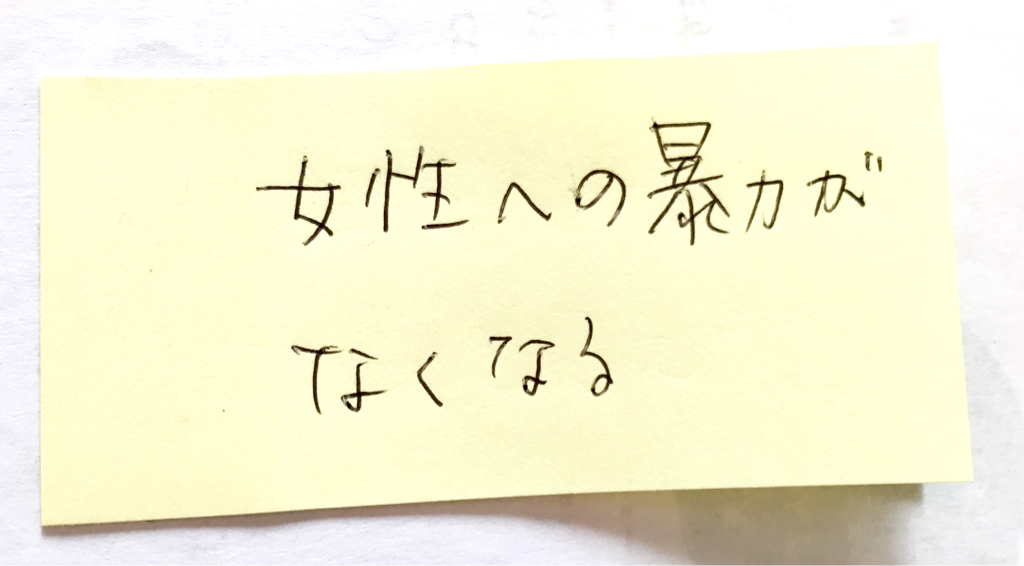 女性への暴力が
なくなる